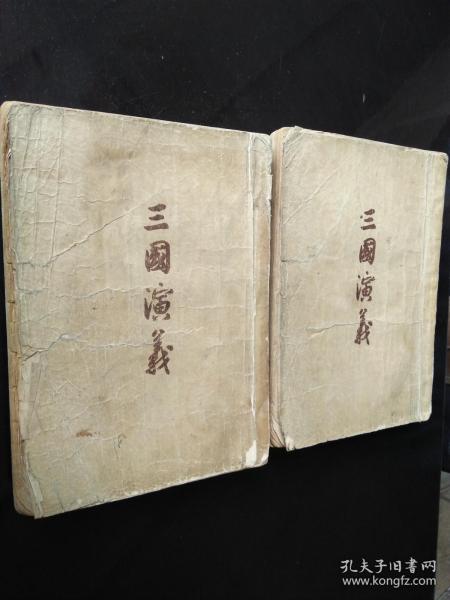 三國演義
三國演義
孔夫子旧书网
www.kongfz.com